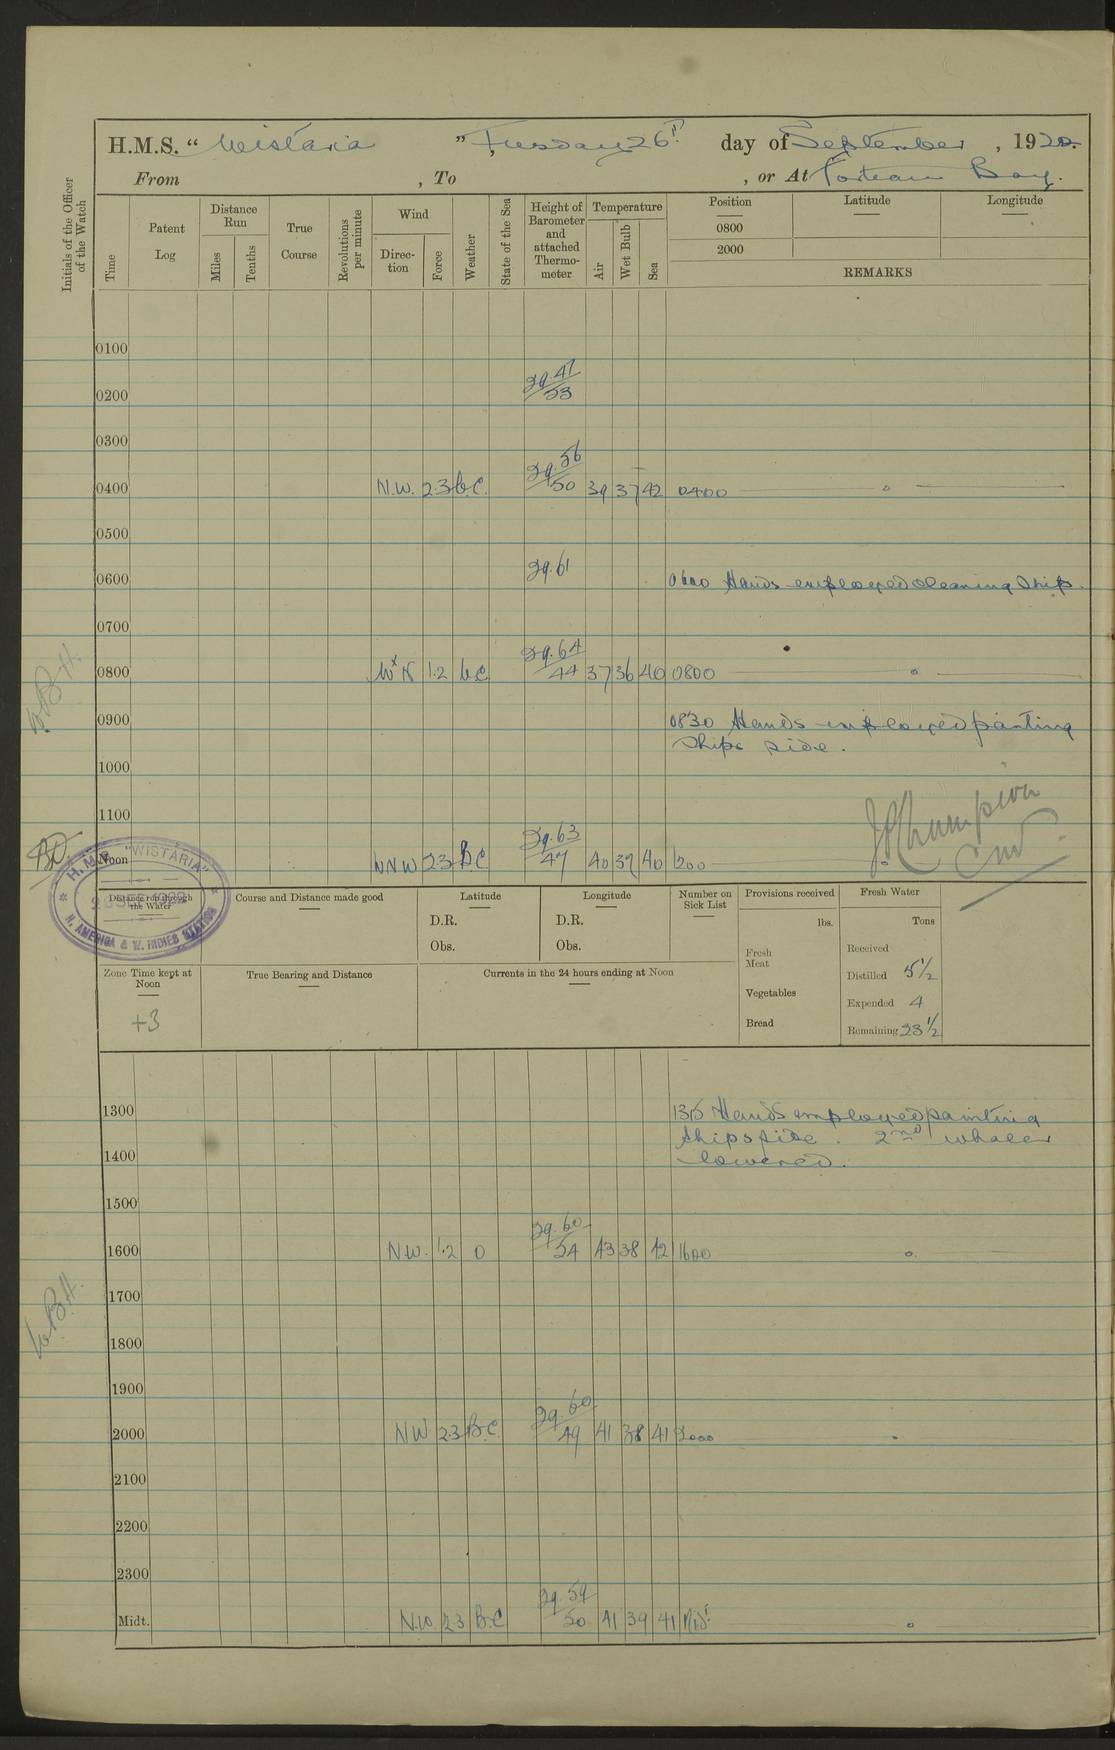 H.M.S. “ Wistaria ”, Tuesday 26th day of September, 1922.
From , To , or At Forteau Bay.
Initials of the Officer of the Watch
Time
Patent Log
Distance Run
Miles
Tenths
True Course
Revolutions per minute
Wind
Direction
Force
Weather
State of the Sea
Height of Barometer and attached Thermometer
Temperature
Air
Wet Bulb
Sea
Position
Latitude
Longitude
0800
2000
REMARKS
0100
29.47
53
0200
0300
29.56
0400 N.W. 2.3 b.c. 50 39 37 42 0400
0500
29.61
0600 0600 Hands employed cleaning ship.
0700
29.64
0800 WxN 1.2 b.c 44 37 36 40 0800
W.B.H.
0900 0830 Hands employed painting
Ships side.
1000
1100
29.63
Noon NNW 2.3 B.C 47 40 39 40 1200
JPChampion
Cmdr
H.M.S. "WISTARIA"
N. AMERICA & W. INDIES STATION
Distance run through the Water
Course and Distance made good
Latitude
D.R.
Obs.
Longitude
D.R.
Obs.
Number on Sick List
Provisions received
lbs.
Fresh Meat
Vegetables
Bread
Fresh Water
Tons
Received
Distilled 5½
Expended 4
Remaining 23½
Zone Time kept at Noon
+3
True Bearing and Distance
Currents in the 24 hours ending at Noon
1300 1315 Hands employed painting
ships side. 2nd whaler
lowered.
1400
1500
29.60
1600 N.W. 1.2 0 54 43 38 42 1600
W.B.H.
1700
1800
1900
29.60
2000 NW 2.3 B.C 49 41 38 41 2000
2100
2200
2300
29.59
Midt. N.W 2.3 B.C 50 41 39 41 Midt.